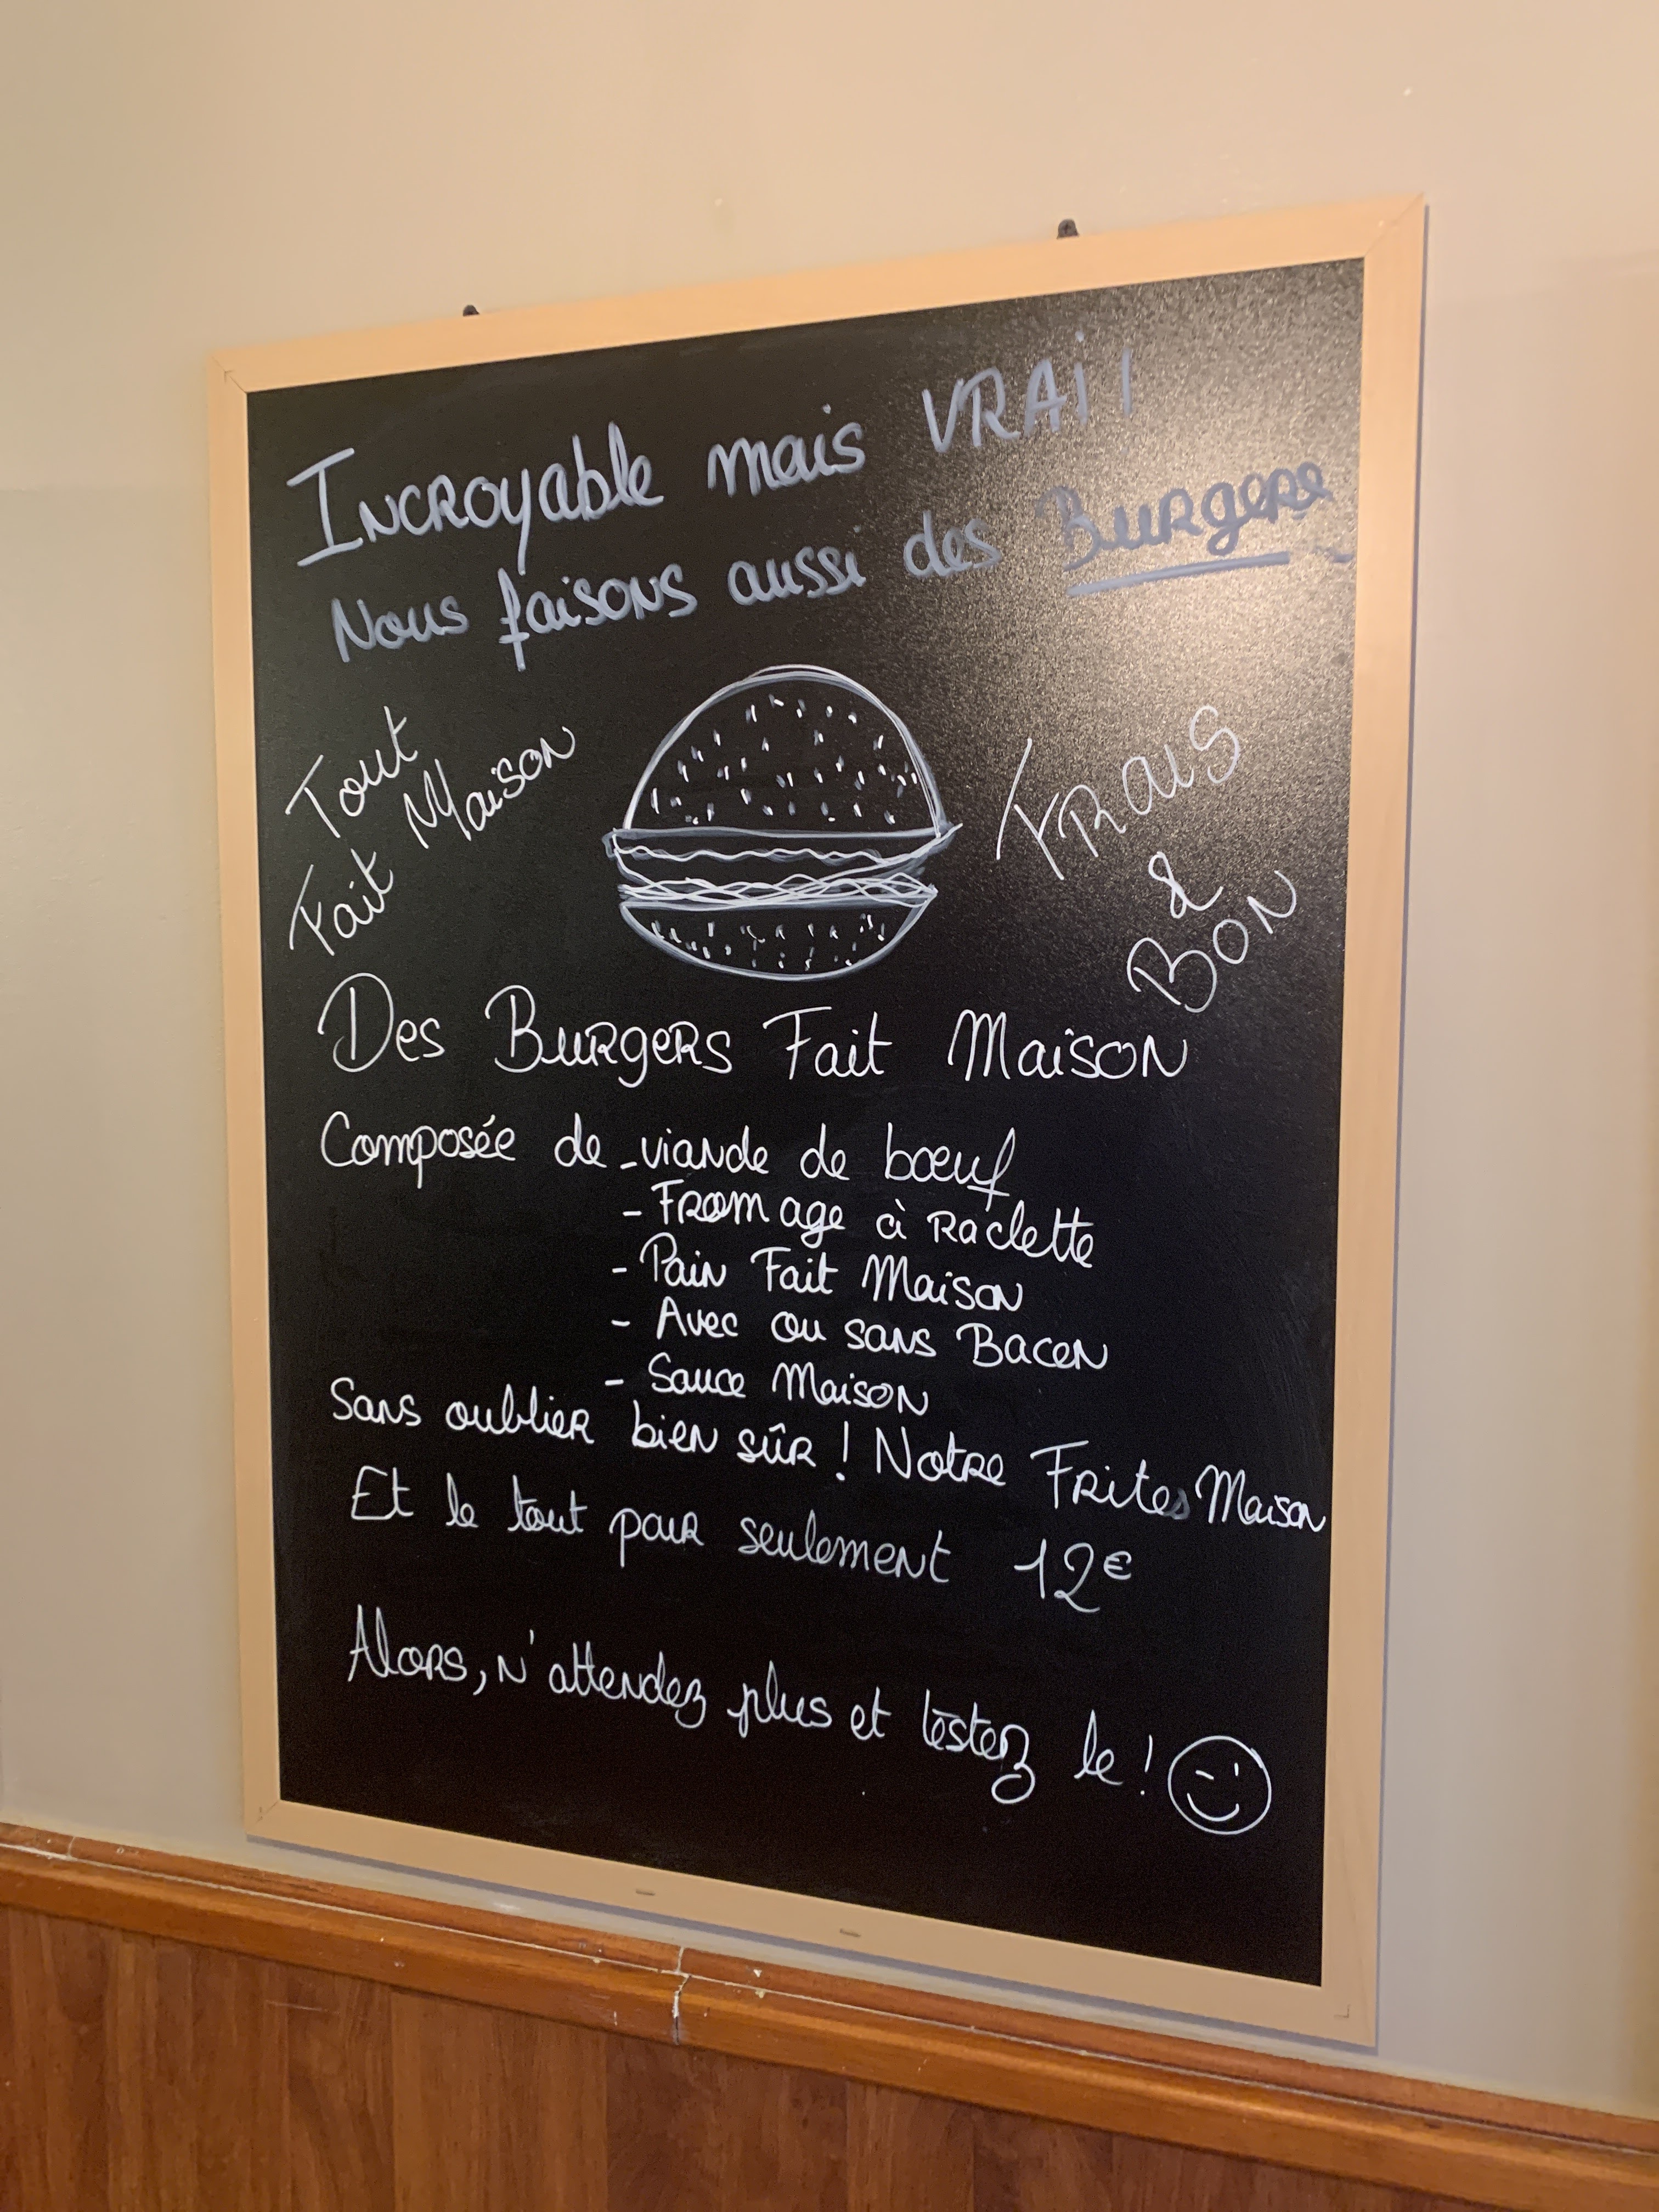 Incroyable mais VRAI !
Nous faisons aussi des Burgers
Tout
Fait Maison
Frais
&
Bon
Des Burgers Fait Maison
Composée de - viande de bœuf
- Fromage à Raclette
- Pain Fait Maison
- Avec ou sans Bacon
- Sauce Maison
Sans oublier bien sûr ! Notre Frites Maison
Et le tout pour seulement 12€
Alors, n'attendez plus et testez le !